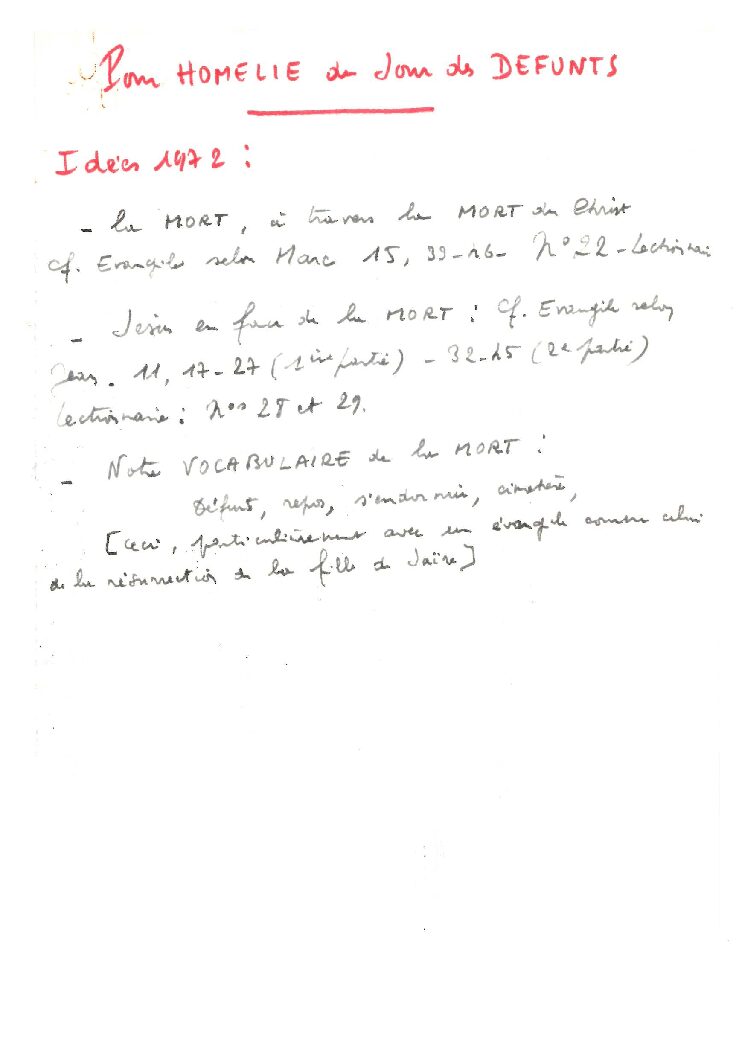 Pour HOMELIE du Jour des DEFUNTS
Idées 1972 :
- la MORT, à travers la MORT du Christ
cf. Evangile selon Marc 15, 33-46- N° 22 - Lectionnaire
- Jésus en face de la MORT : cf. Evangile selon
Jean. 11, 17-27 (1ière partie) - 32-45 (2e partie)
Lectionnaire : Nos 28 et 29.
- Notre VOCABULAIRE de la MORT :
Défunt, repos, s'endormir, cimetière,
[ceci, particulièrement avec un évangile comme celui
de la résurrection de la fille de Jaïre]